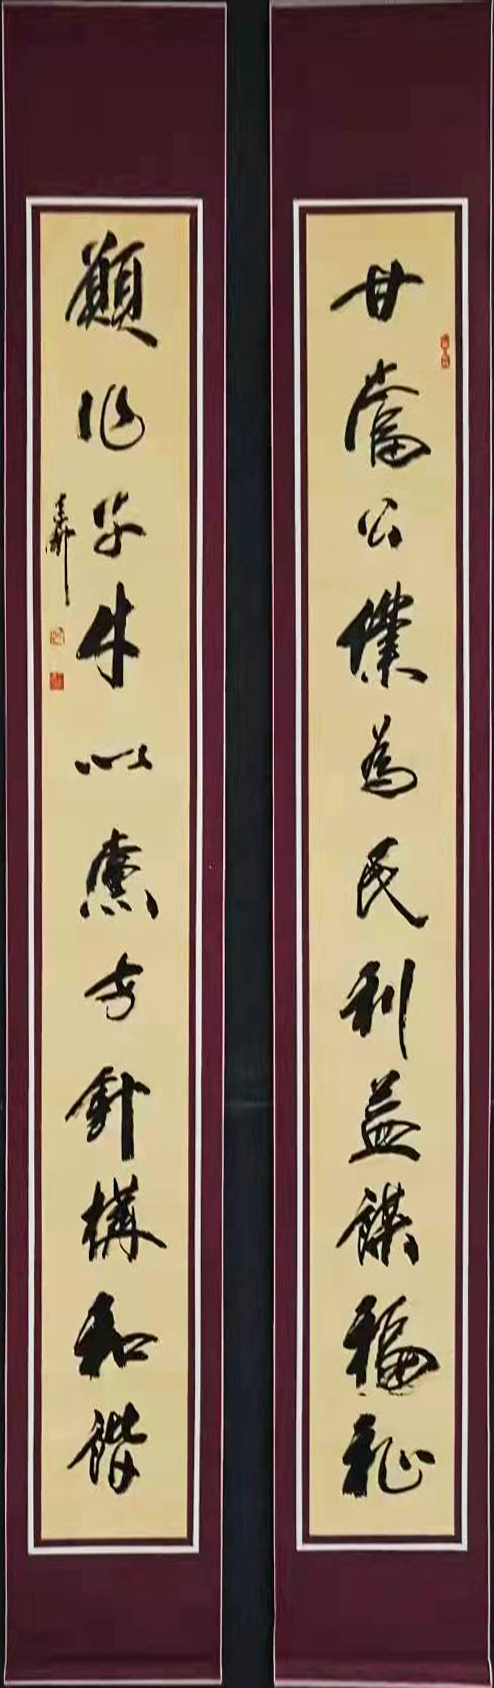 甘當公僕為民利益謀福祉
願作孺牛以黨方針構和諧